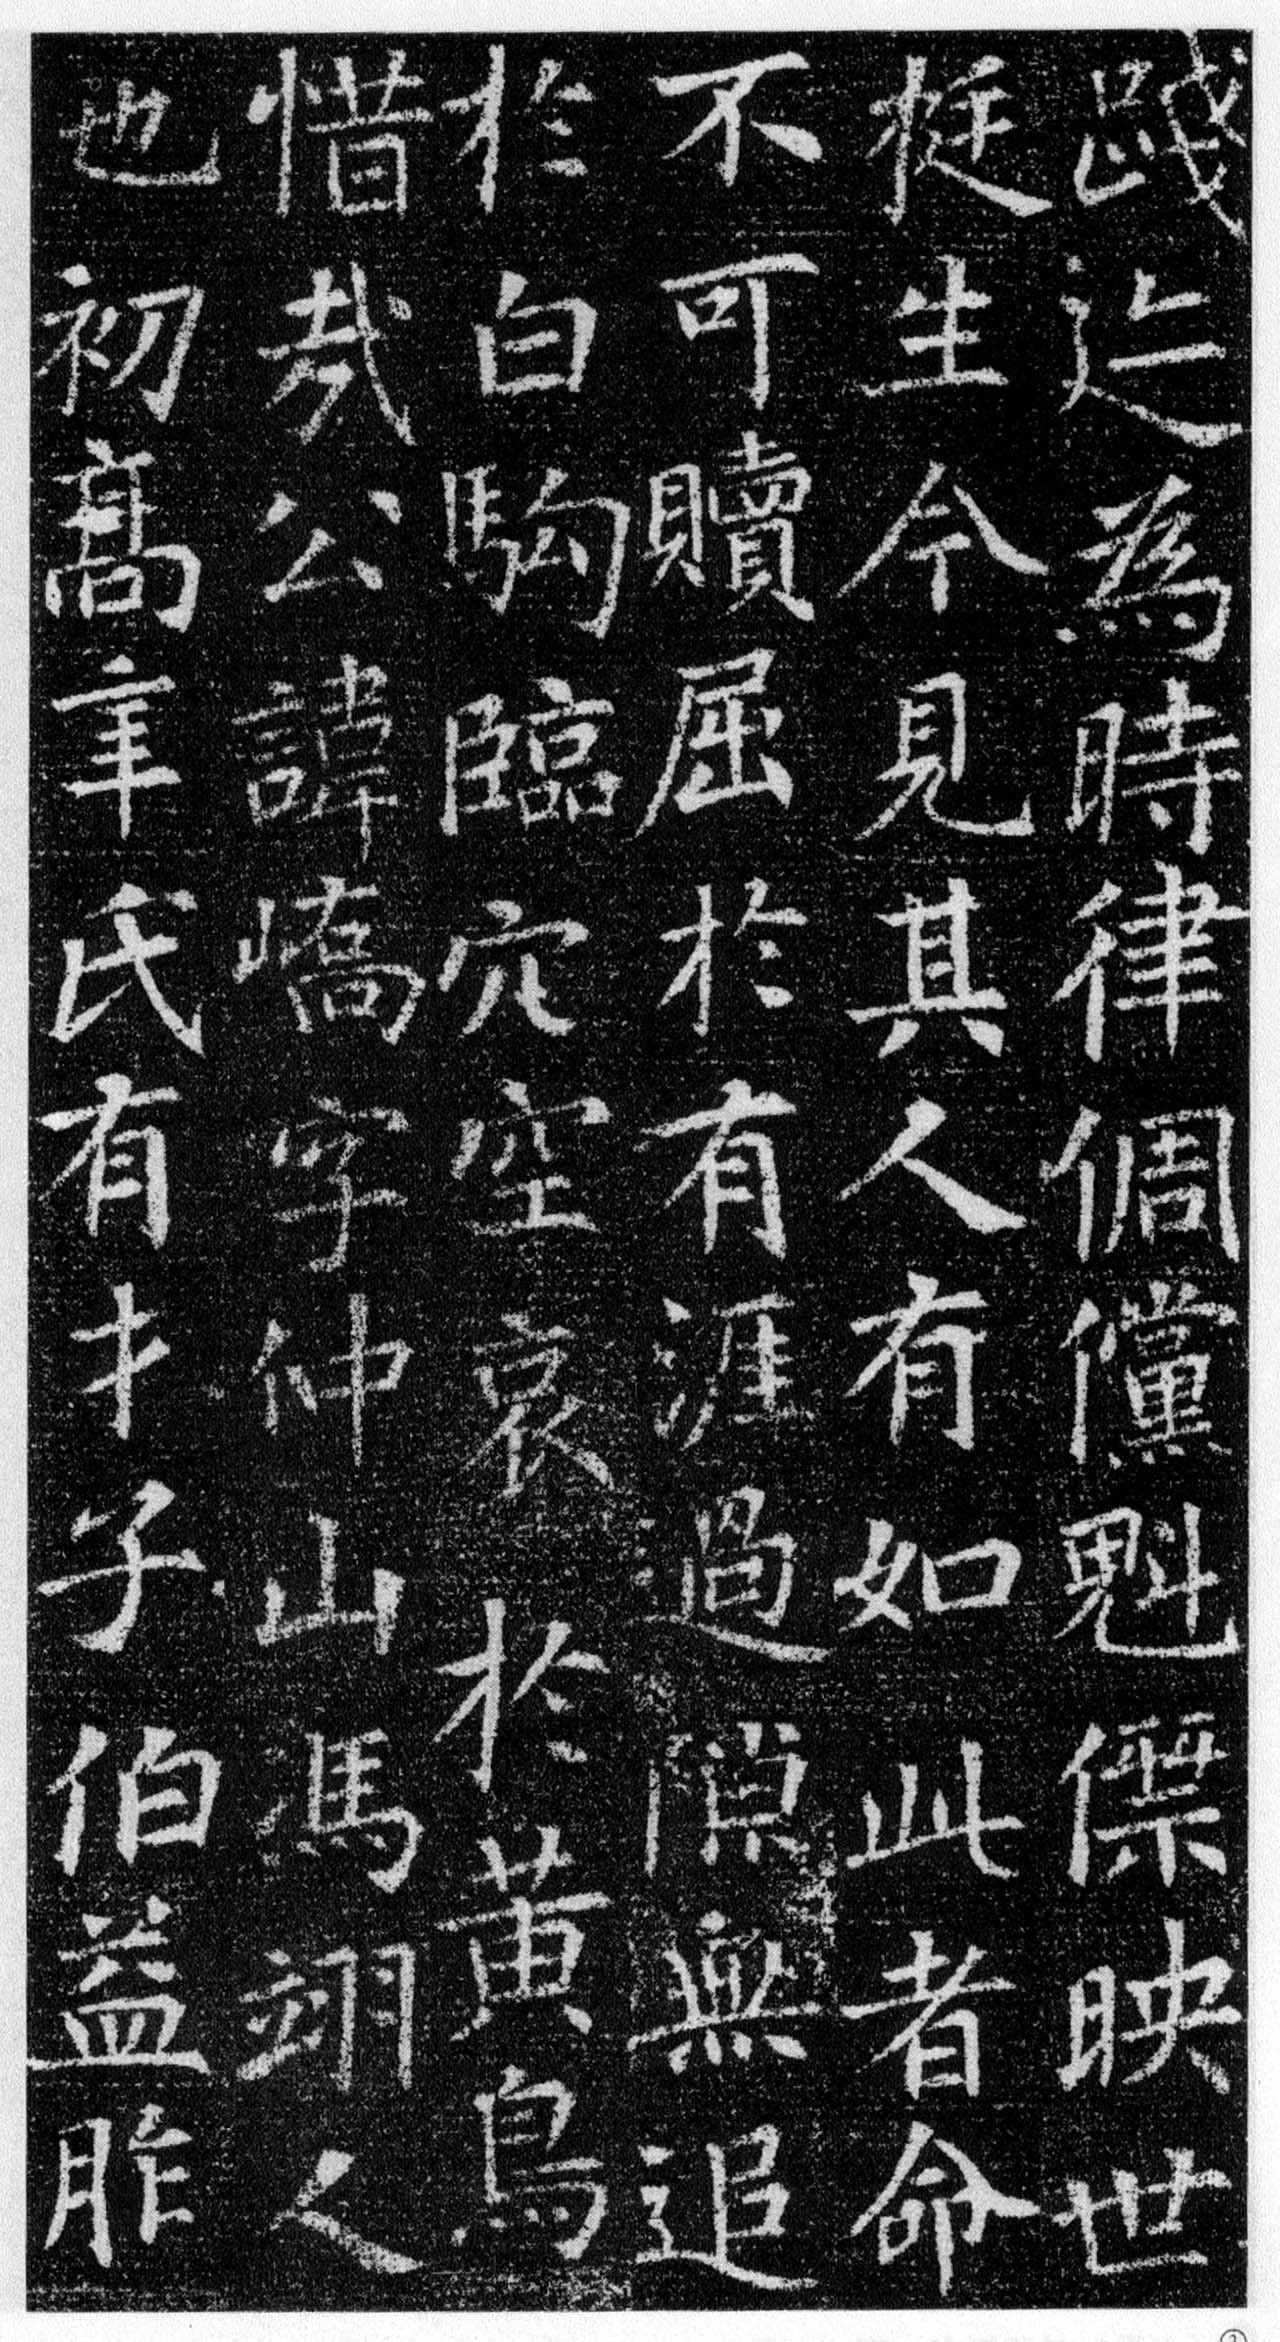 踐迄為時律倜儻魁傑映世
挺生今見其人有如此者命
不可贖屈於有涯過隙無追
於白駒臨穴空哀於黃鳥
惜哉公諱嶠字仲山馮翊人
也初高辛氏有才子伯益胙
②